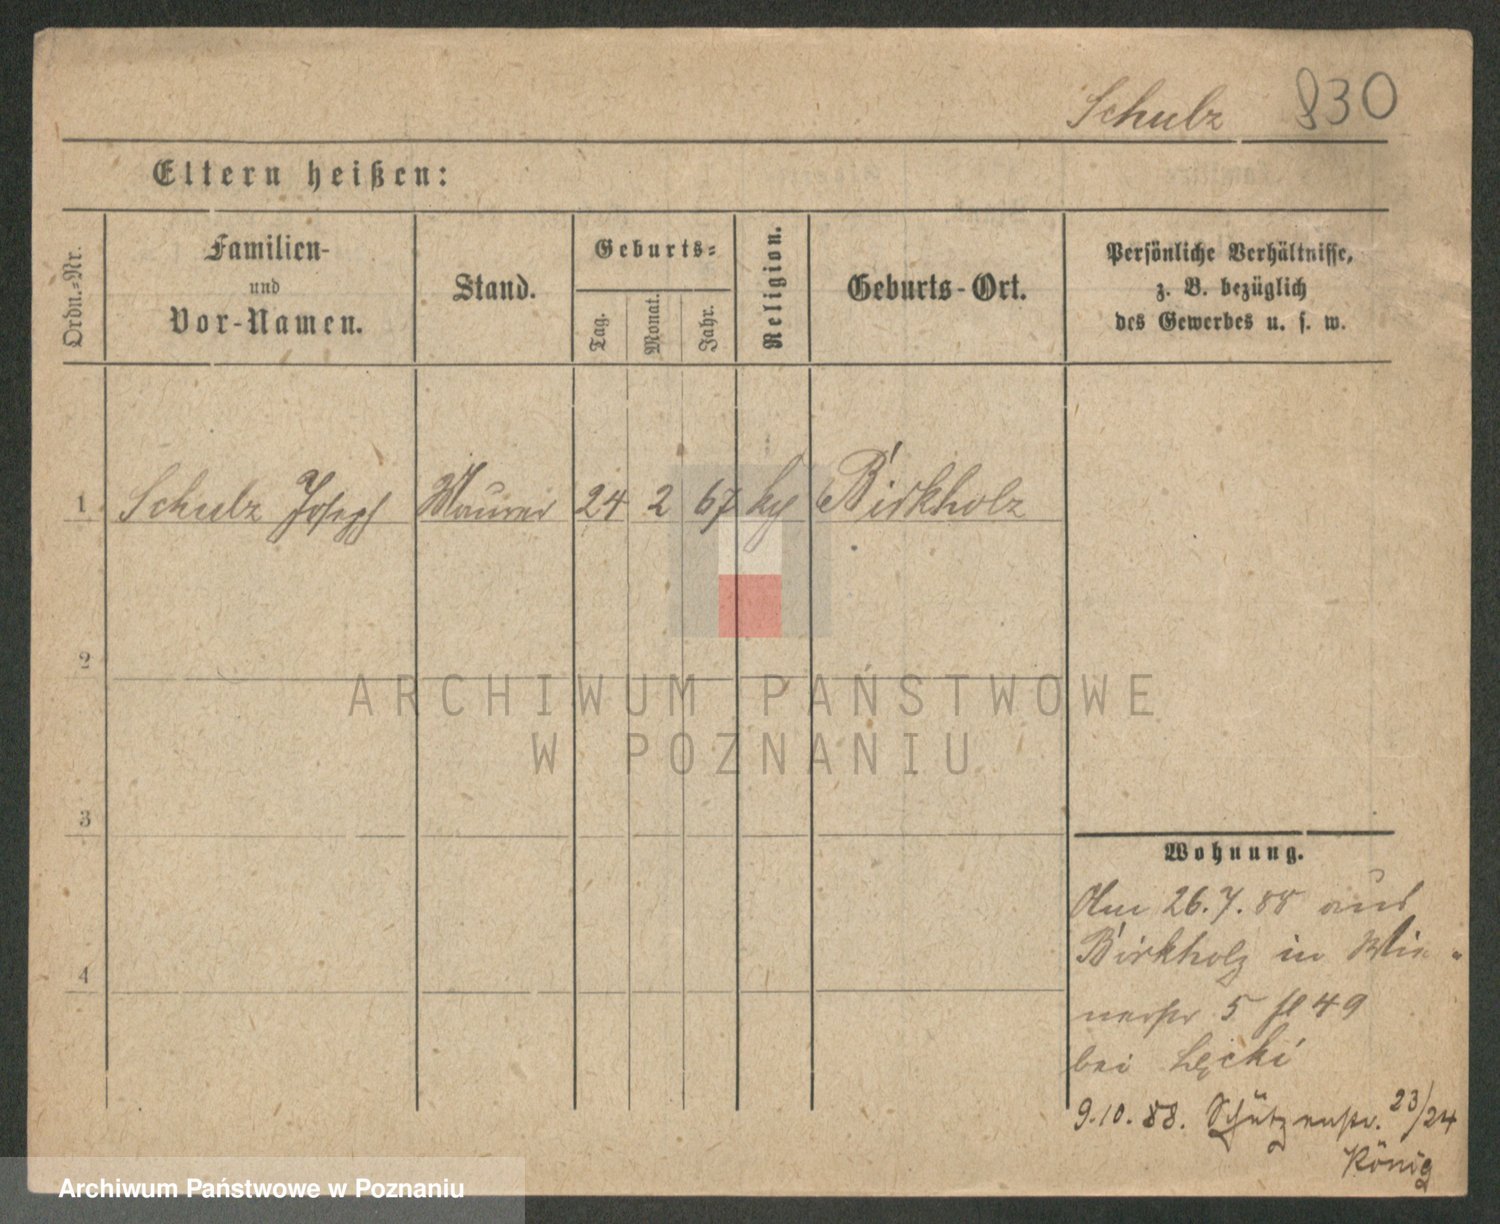 Schulz 830
Eltern heißen:
Ordn.-Nr.
Familien-
und
Vor-Namen.
Stand.
Geburts-
Tag.
Monat.
Jahr.
Religion.
Geburts-Ort.
Persönliche Verhältnisse,
z. B. bezüglich
des Gewerbes u. s. w.
1 Schulz Joseph Maurer 24 2 67 Birkholz
2
3
4
Wohnung.
Am 26.7.88 aus
Birkholz in Wie-
nerstr 5
bei Łęcki
9.10.88. Schützenstr. 23/24
König
ARCHIWUM PAŃSTWOWE
W POZNANIU
Archiwum Państwowe w Poznaniu